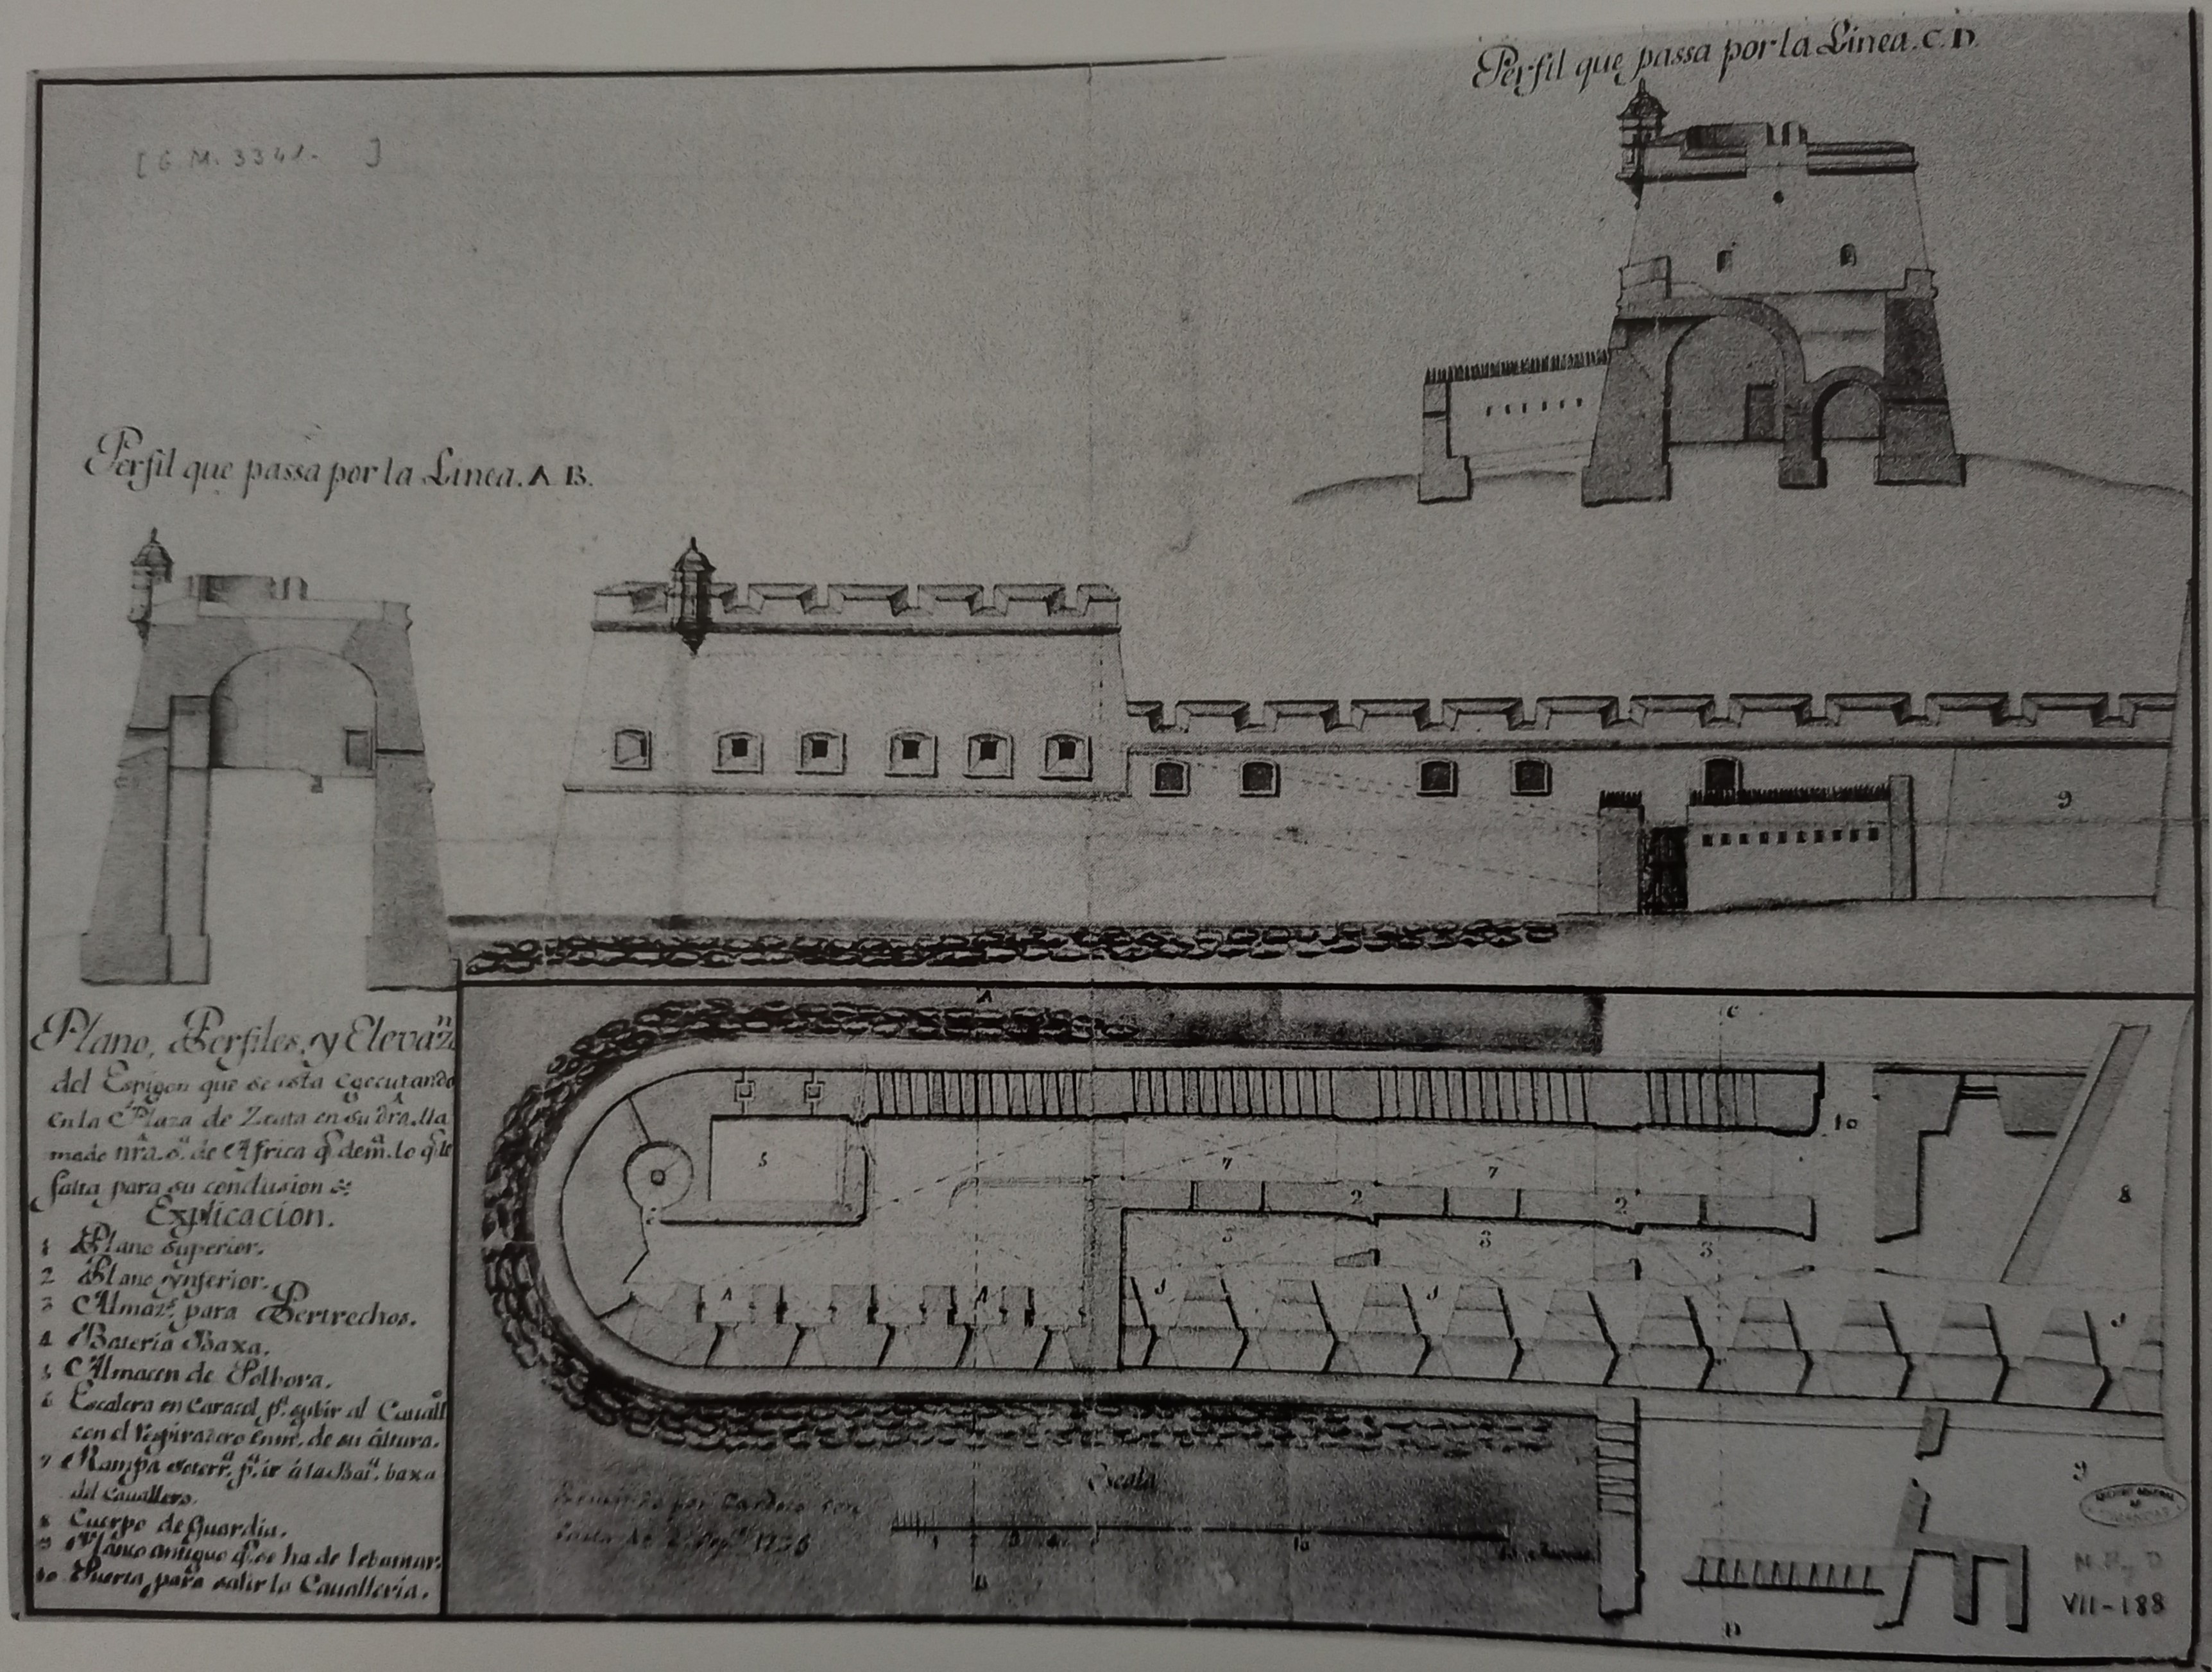 Perfil que passa por la Linea. C. D.
[G. M. 3341- ]
Perfil que passa por la Linea. A B.
9
Plano, Perfiles, y Elevaz.n
del Espigon que se esta Egecutando
en la Plaza de Zeuta en su dra. lla
mado nra. s.a de Africa q dem.a lo q le
falta para su conclusion
Explicacion.
1 Plano Superior.
2 Plano Ynferior.
3 Almaz.s para Pertrechos.
4 Bateria Baxa.
5 Almacen de Polbora.
6 Escalera en Caracol p.a subir al Cauall.o
con el Respiradero enm. de su altura.
7 Rampa soterr.a p.a ir à la Bat.a baxa
del Cauallero.
8 Cuerpo de Guardia.
9 Flanco antiguo q se ha de lebantar.
10 Puerta para salir la Caualleria.
A
C
10
5
7
7
2
2
8
3
3
3
4
4
1
1
1
9
Escala
1 2 3 4
10
1736
B
D
ARCHIVO GENERAL
DE
SIMANCAS
M. P. y D
VII-188